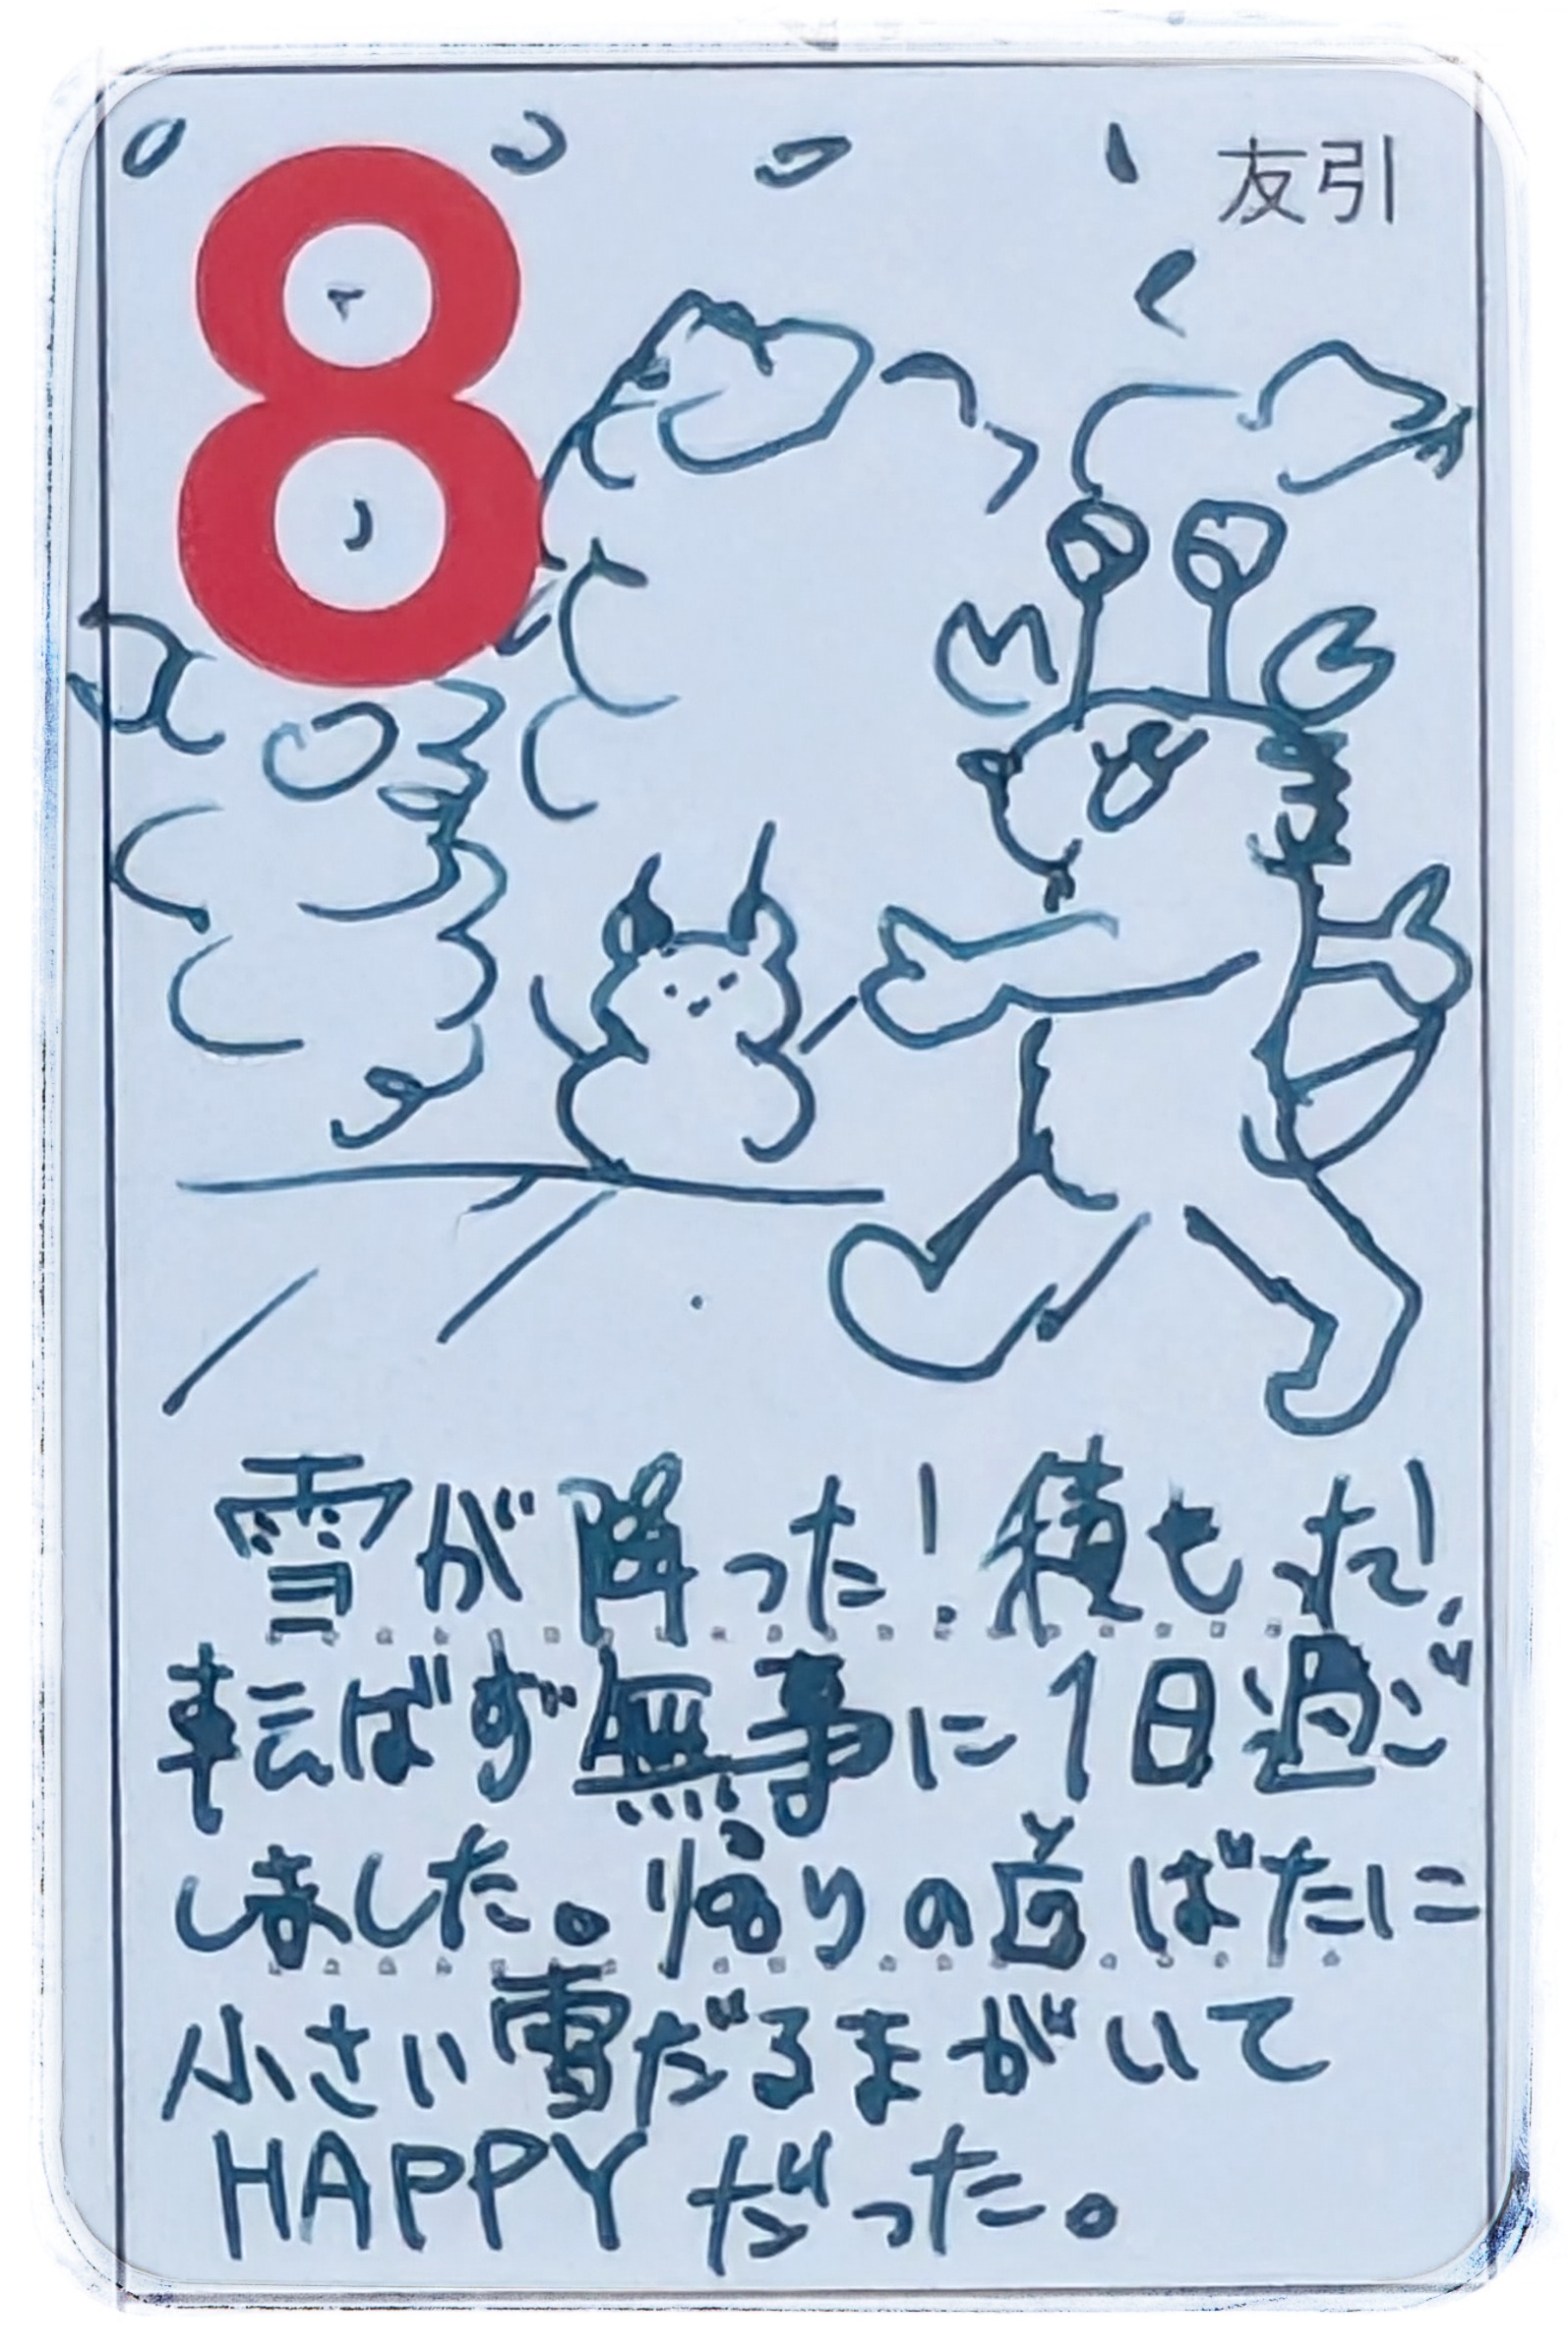 8
友引
雪が降った！積もった！
転ばず無事に1日過ご
しました。帰りの道ばたに
小さい雪だるまがいて
HAPPYだった。